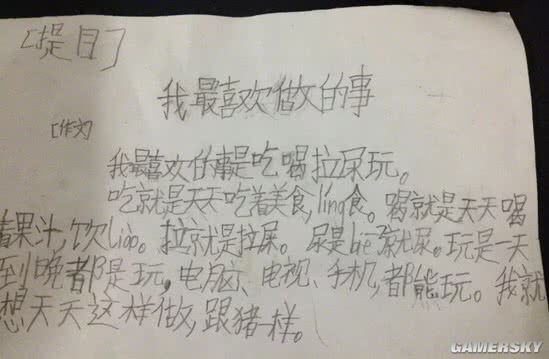 [提目]
我最喜欢做的事
[作文]
我最喜欢的事是吃喝拉尿玩。
吃就是天天吃着美食,ling食。喝就是天天喝
着果汁,饮liào。拉就是拉屎。尿是biē了就尿。玩是一天
到晚都是玩,电脑、电视、手机,都能玩。我就
想天天这样做,跟猪一样。
GAMERSKY